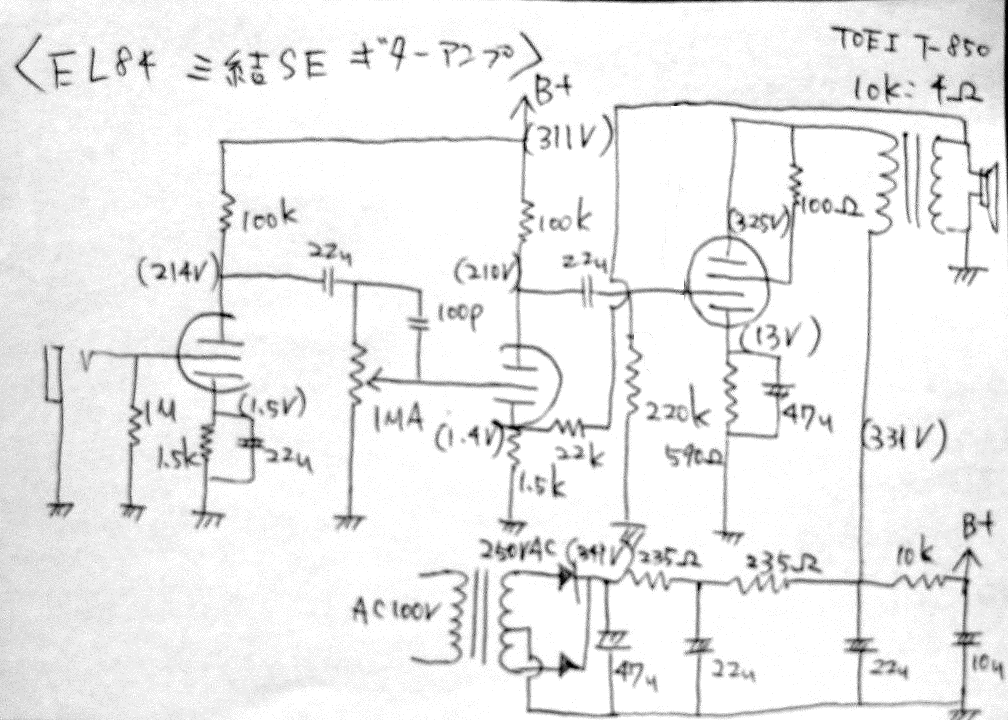 〈EL84 三結SE ギターアンプ〉
TOEI T-850
10k:4Ω
B+
(311V)
100k
100k
100Ω
(325V)
(214V)
22u
(210V)
22u
100p
(13V)
1M
(1.5V)
1MA
(1.4V)
220k
47u
1.5k
22u
22k
590Ω
(331V)
1.5k
B+
250VAC
(341V)
235Ω
235Ω
10k
AC100V
47u
22u
22u
10u